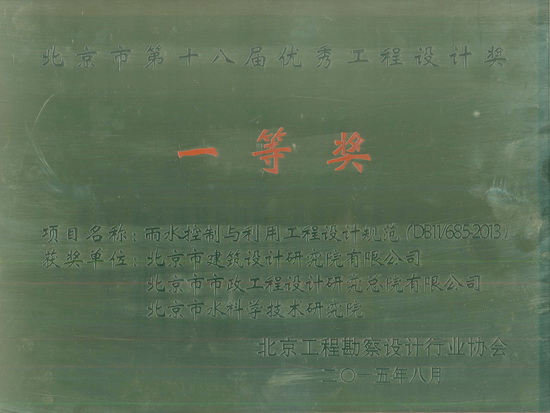 北京市第十八届优秀工程设计奖
一等奖
项目名称：雨水控制与利用工程设计规范(DB11/685-2013)
获奖单位：北京市建筑设计研究院有限公司
北京市市政工程设计研究总院有限公司
北京市水科学技术研究院
北京工程勘察设计行业协会
二〇一五年八月